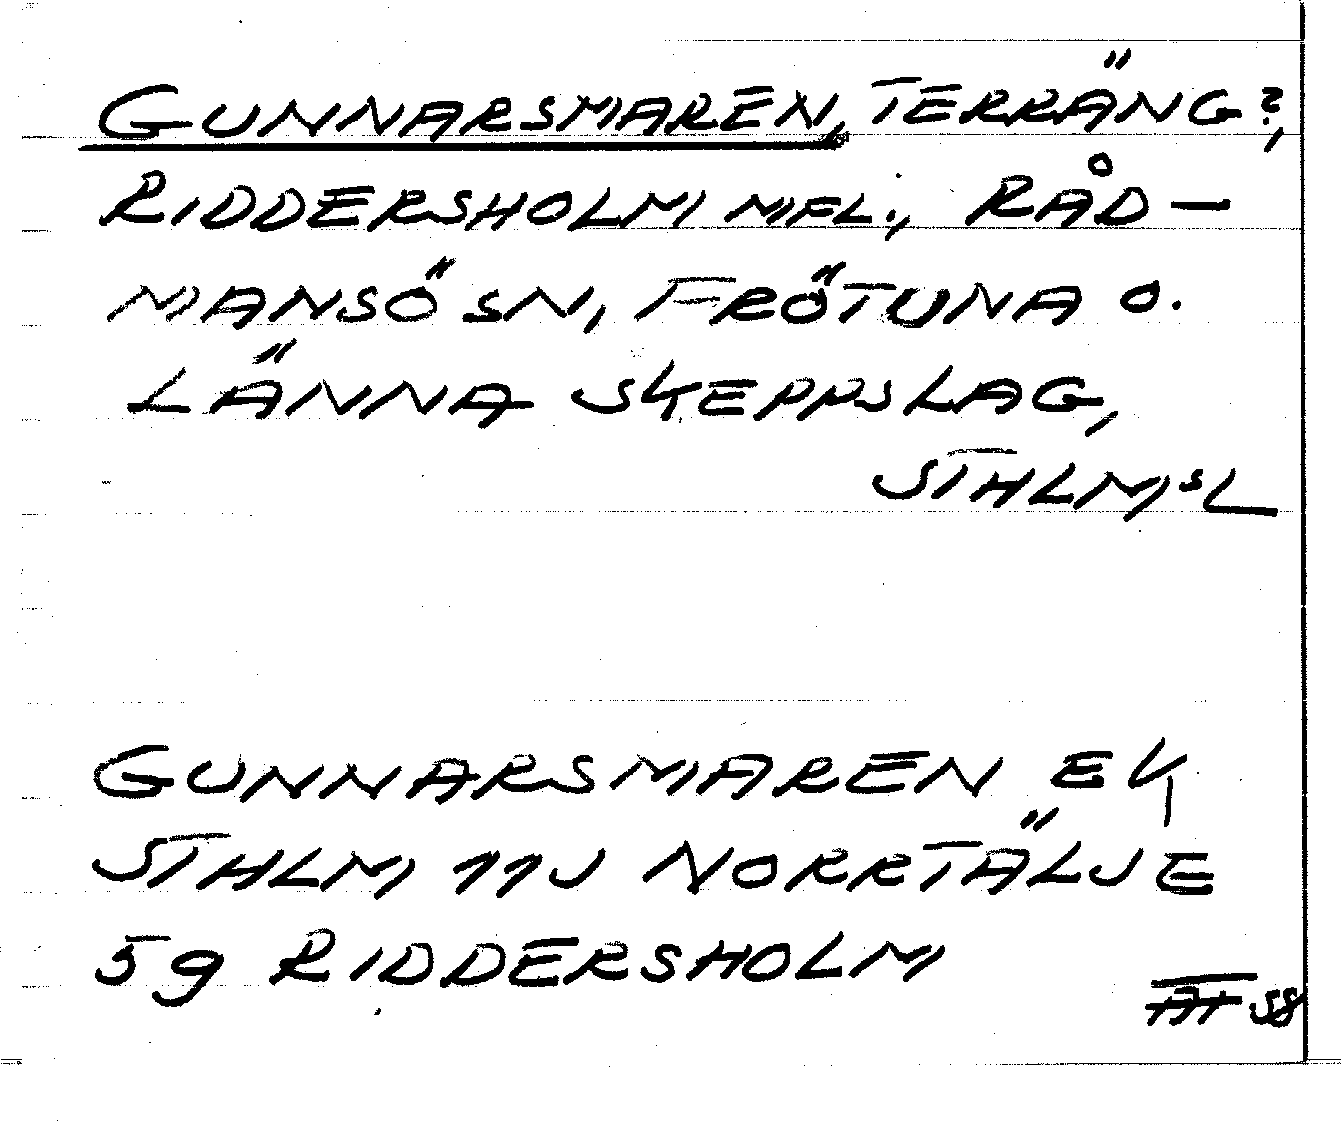 GUNNARSMAREN, TERRÄNG?,
RIDDERSHOLM M.FL., RÅD-
MANSÖ SN, FRÖTUNA O.
LÄNNA SKEPPSLAG,
STHLMSL
GUNNARSMAREN EK
STHLM 11J NORRTÄLJE
5g RIDDERSHOLM
58